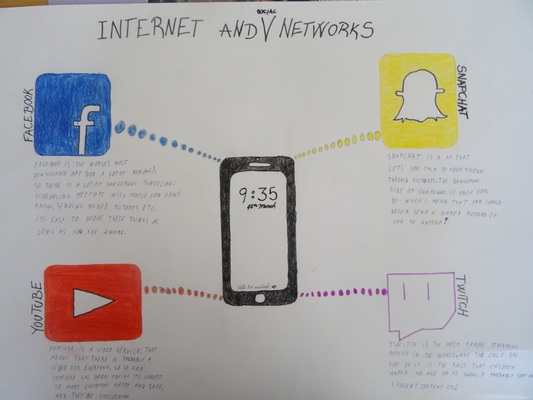 SOCIAL
INTERNET AND V NETWORKS
FACEBOOK
f
FACEBOOK IS THE WORLD'S MOST
DOWNLOADED APP
SO THERE IS A LOT OF DANGEROUS
WITH PEOPLE YOU DON'T
KNOW, SENDING NAKED PICTURES ETC.
ITS EASY TO AVOID THESE THINGS AS
LONG AS YOU ARE AWARE.
SNAPCHAT
SNAPCHAT IS A APP THAT
LETS YOU TALK TO YOUR FRIENDS
THROUGH PICTURES. THE DANGEROUS
SIDE OF SNAPCHAT IS
BY WHICH I MEAN THAT YOU SHOULD
NEVER SEND A NAKED PICTURE OF
YOU TO ANYONE!
9:35
YOUTUBE
YOUTUBE IS A VIDEO SERVICE, THAT
MEANS THAT THERE IS PROBABLY A
VIDEO FOR EVERYONE. SO FAR
YOUTUBE HAS BEEN TRYING ITS HARDEST
TO MAKE EVERYONE HAPPY AND SAFE,
AND THEY'RE SUCCEEDING.
TWITCH
TWITCH IS THE MOST FAMOUS STREAMING
SERVICE IN THE WORLD AND THE ONLY BAD
SIDE OF IT IS THE FACT THAT CHILDREN
UNDER THE AGE OF 13 SHOULD PROBABLY NOT
(VIOLENT CONTENT ETC)